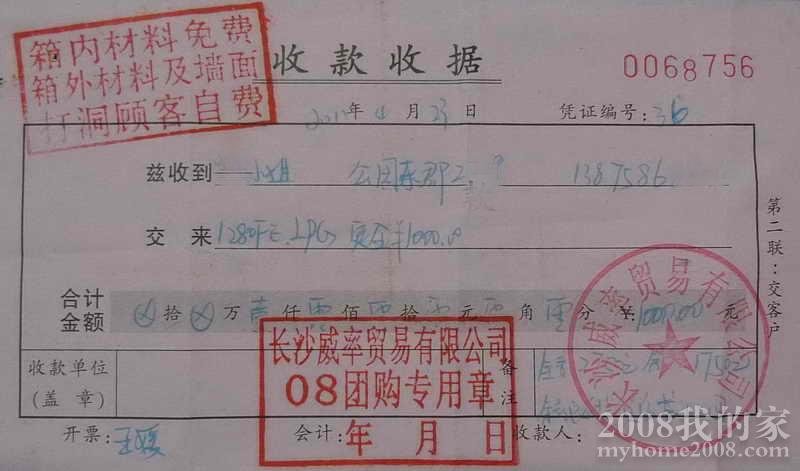 箱内材料免费
箱外材料及墙面
打洞顾客自费
收款收据
0068756
年 4 月 23 日 凭证编号: 36
兹收到 公园东郡 1387586
交来 ¥1000.00
合计金额 ⊗拾⊗万壹仟零佰零拾零元零角零分 ¥:1000.00元
第二联:交客户
收款单位(盖章)
备注
长沙威率贸易有限公司
08团购专用章
年 月 日
长沙威率贸易有限公司
开票: 王媛 会计: 收款人:
2008我的家
myhome2008.com